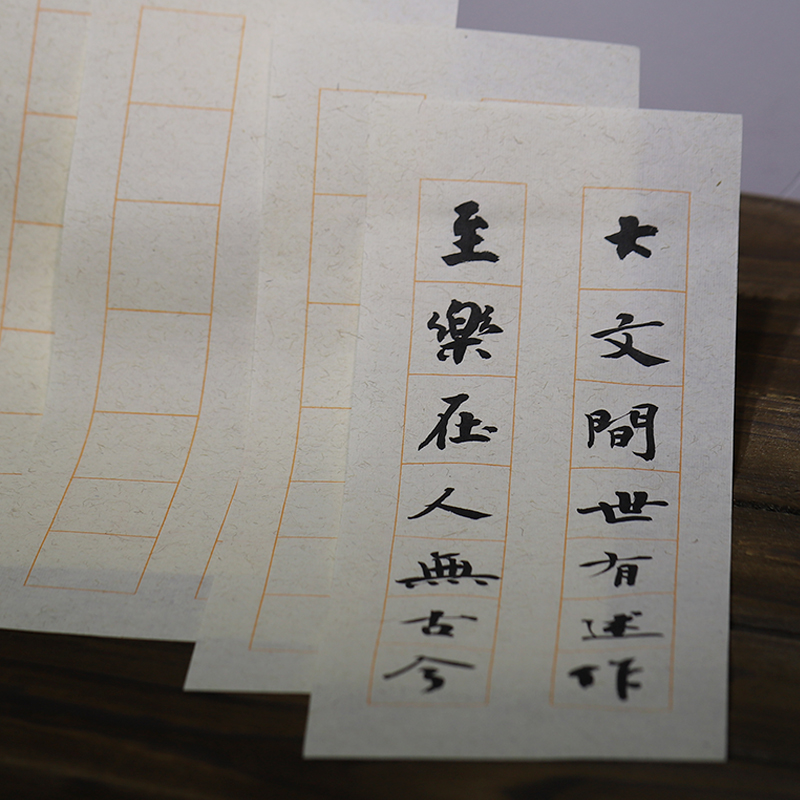 大文間世有述作
至樂在人無古今